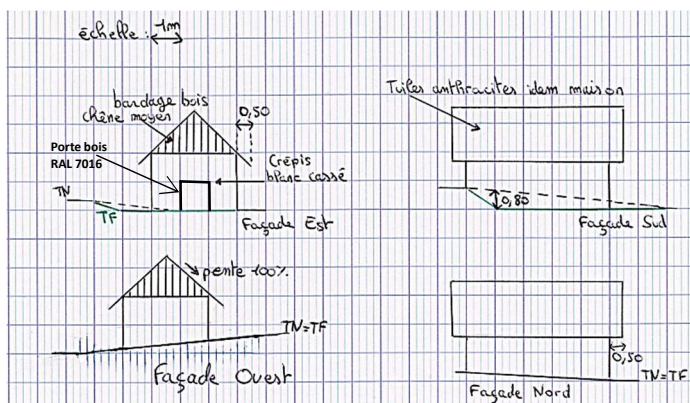 échelle : 1m
bardage bois
chêne moyen
0,50
Porte bois
RAL 7016
Crépis
blanc cassé
TN
TF
Façade Est
Tuiles anthracites idem maison
0,80
Façade Sud
pente 100%.
TN=TF
Façade Ouest
0,50
TN=TF
Façade Nord